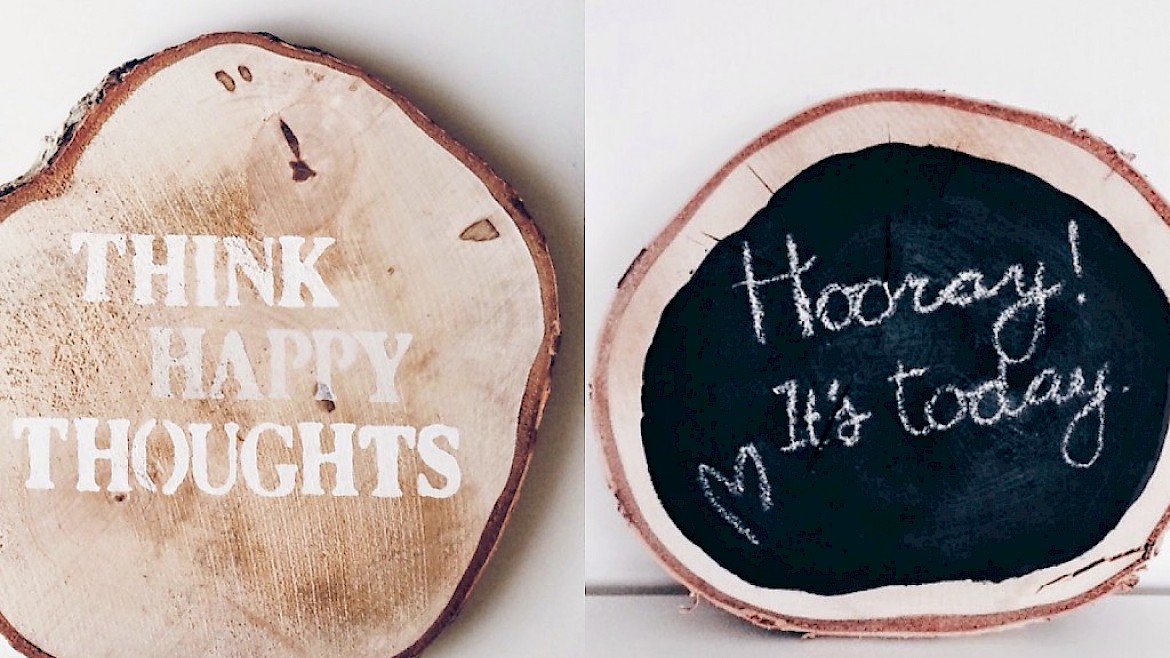 THINK
HAPPY
THOUGHTS
Hooray!
It's today.